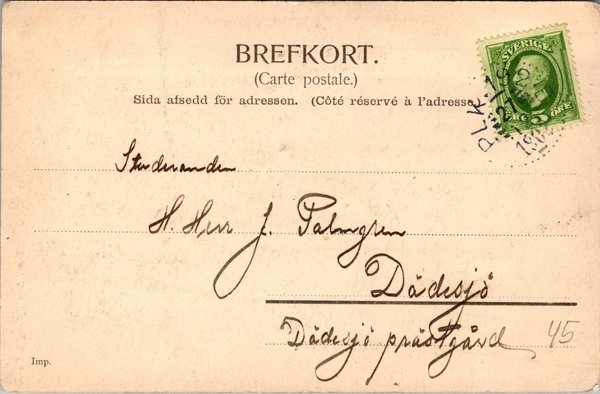 BREFKORT.
(Carte postale.)
Sida afsedd för adressen. (Côté réservé à l'adresse
SVERIGE
5 ÖRE
PLK
Studeranden
H. Herr J. Palmgren
Dädesjö
Dädesjö prästgård
45
Imp.